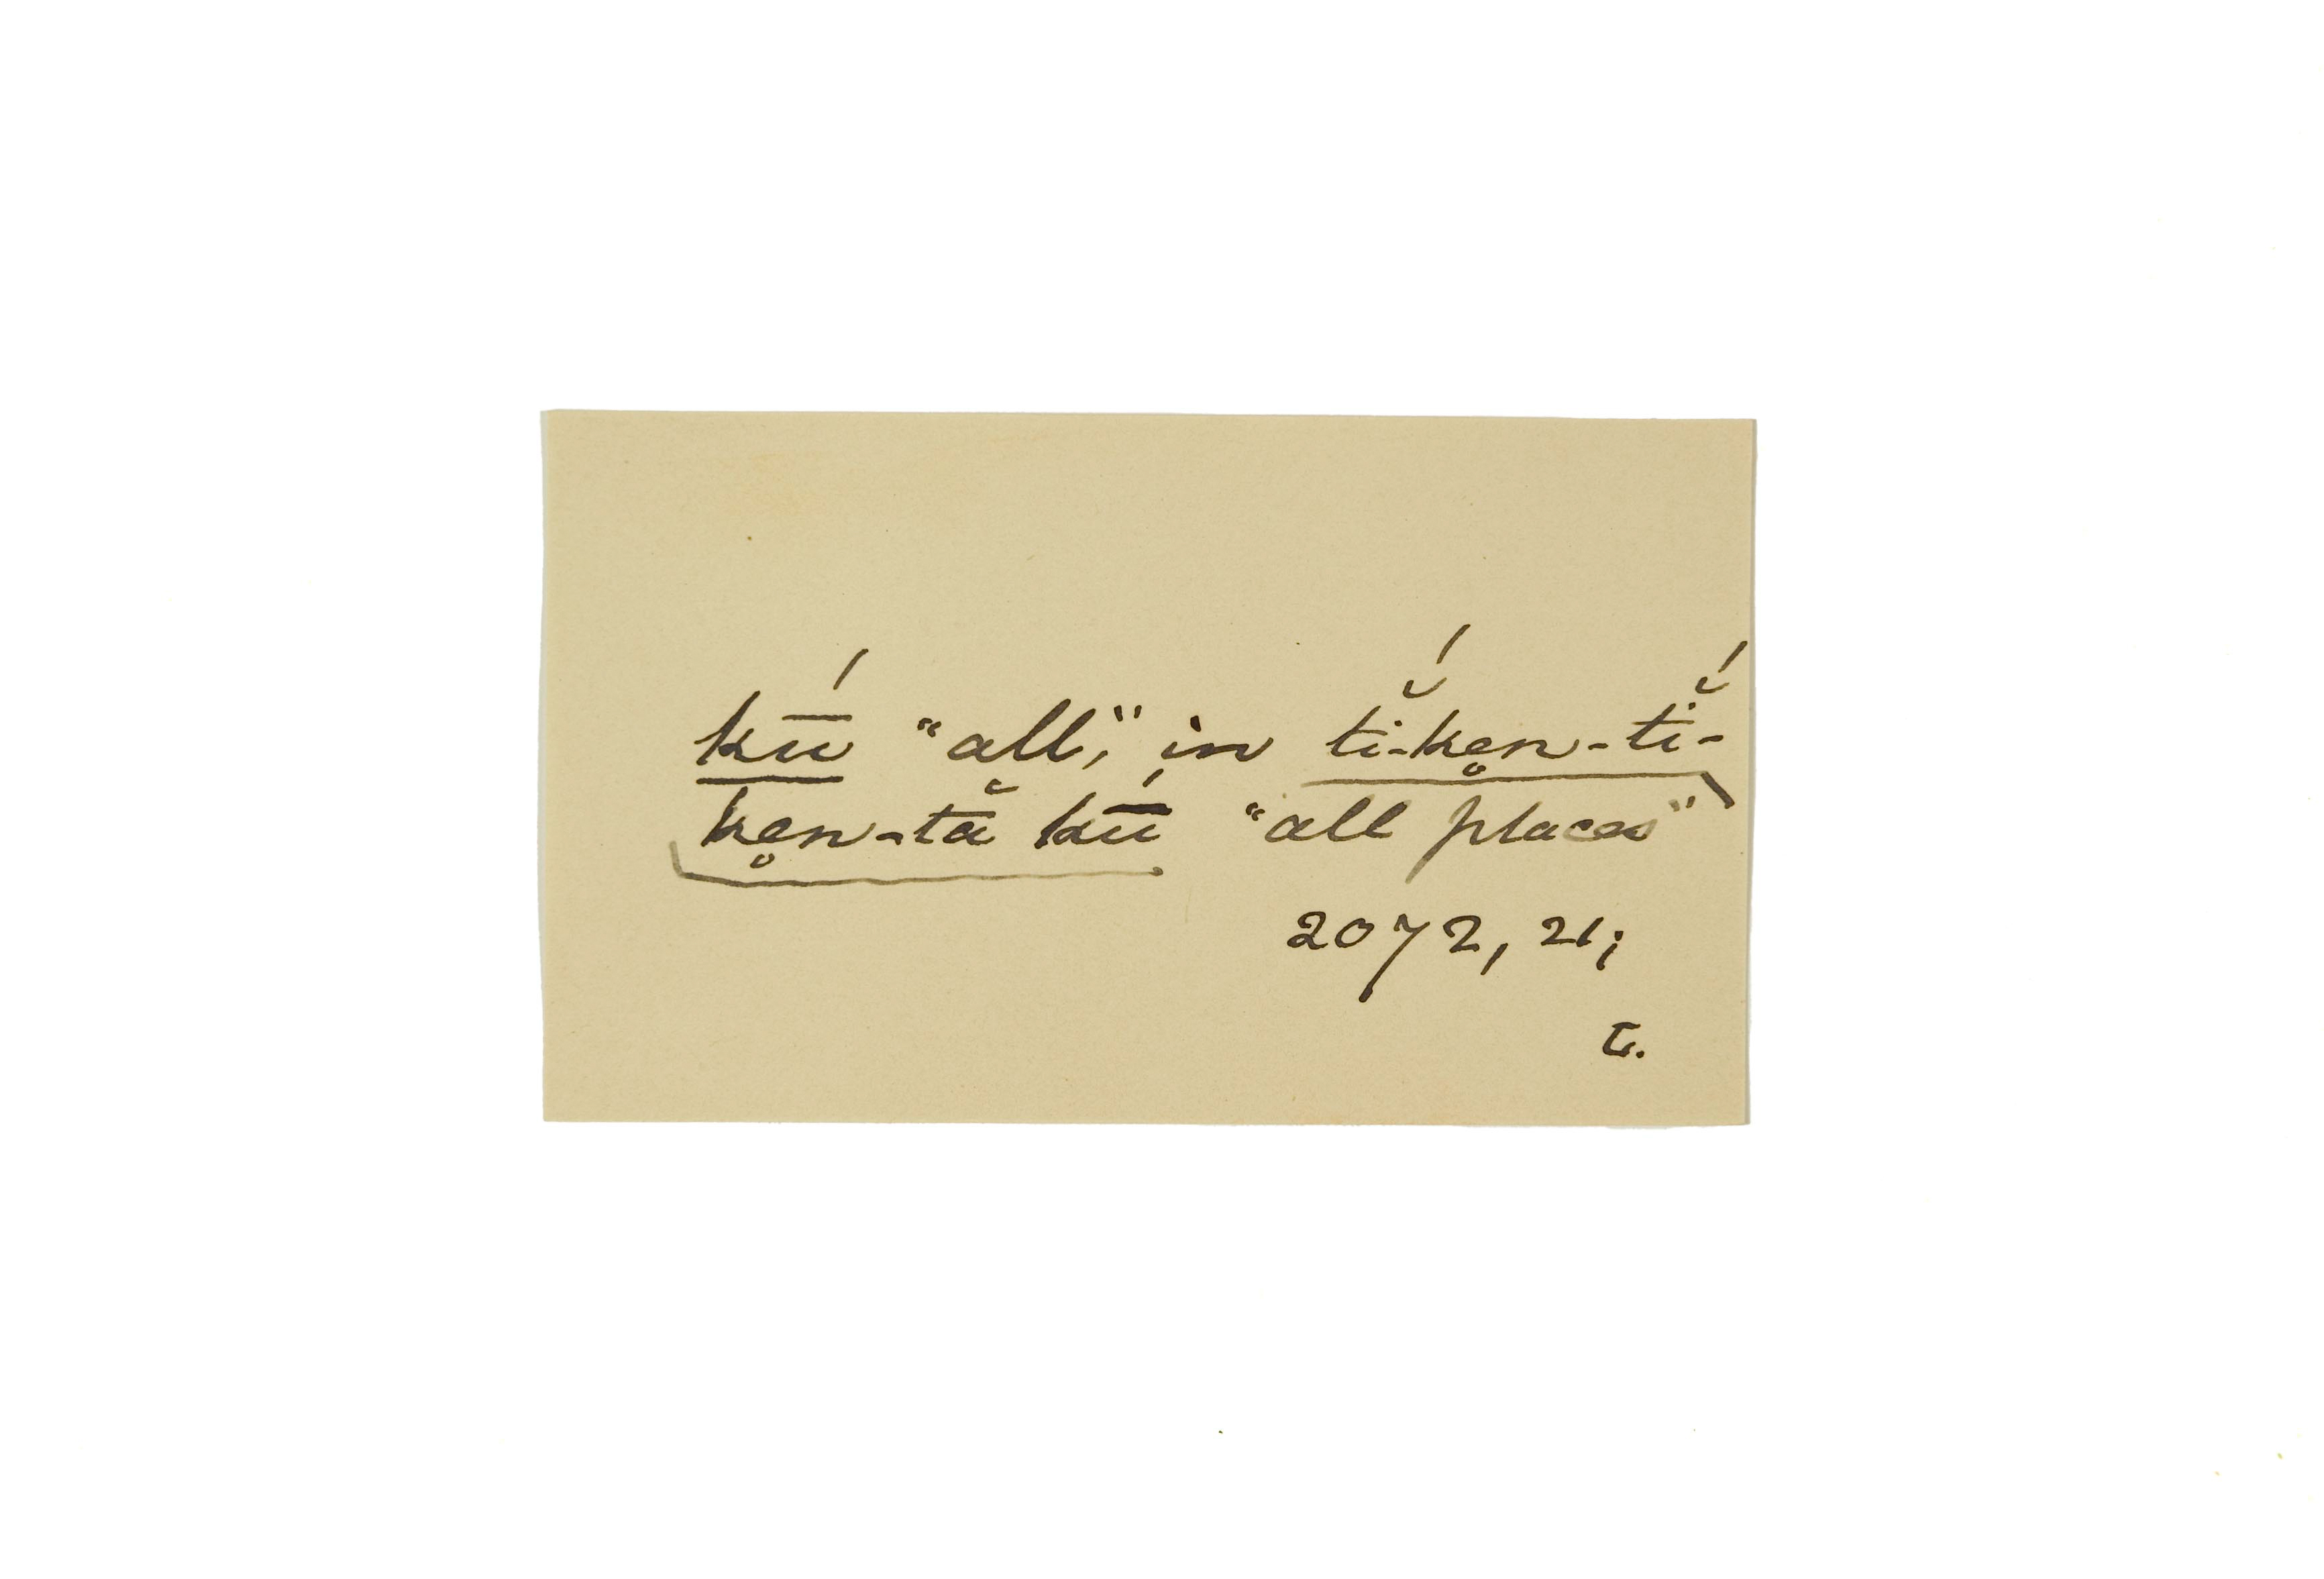 kū́ "all," in tĭ́-ke̥n-tĭ́-
ke̥n-tă kū́ "all places"
2072, 21;